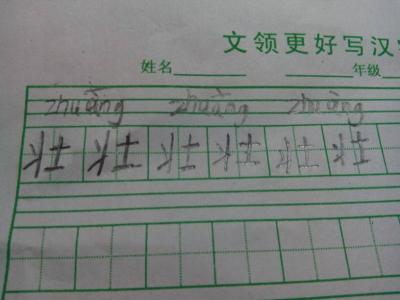 文领更好写汉
姓名 年级
zhuàng zhuàng zhuàng
壮 壮 壮 壮 壮 壮